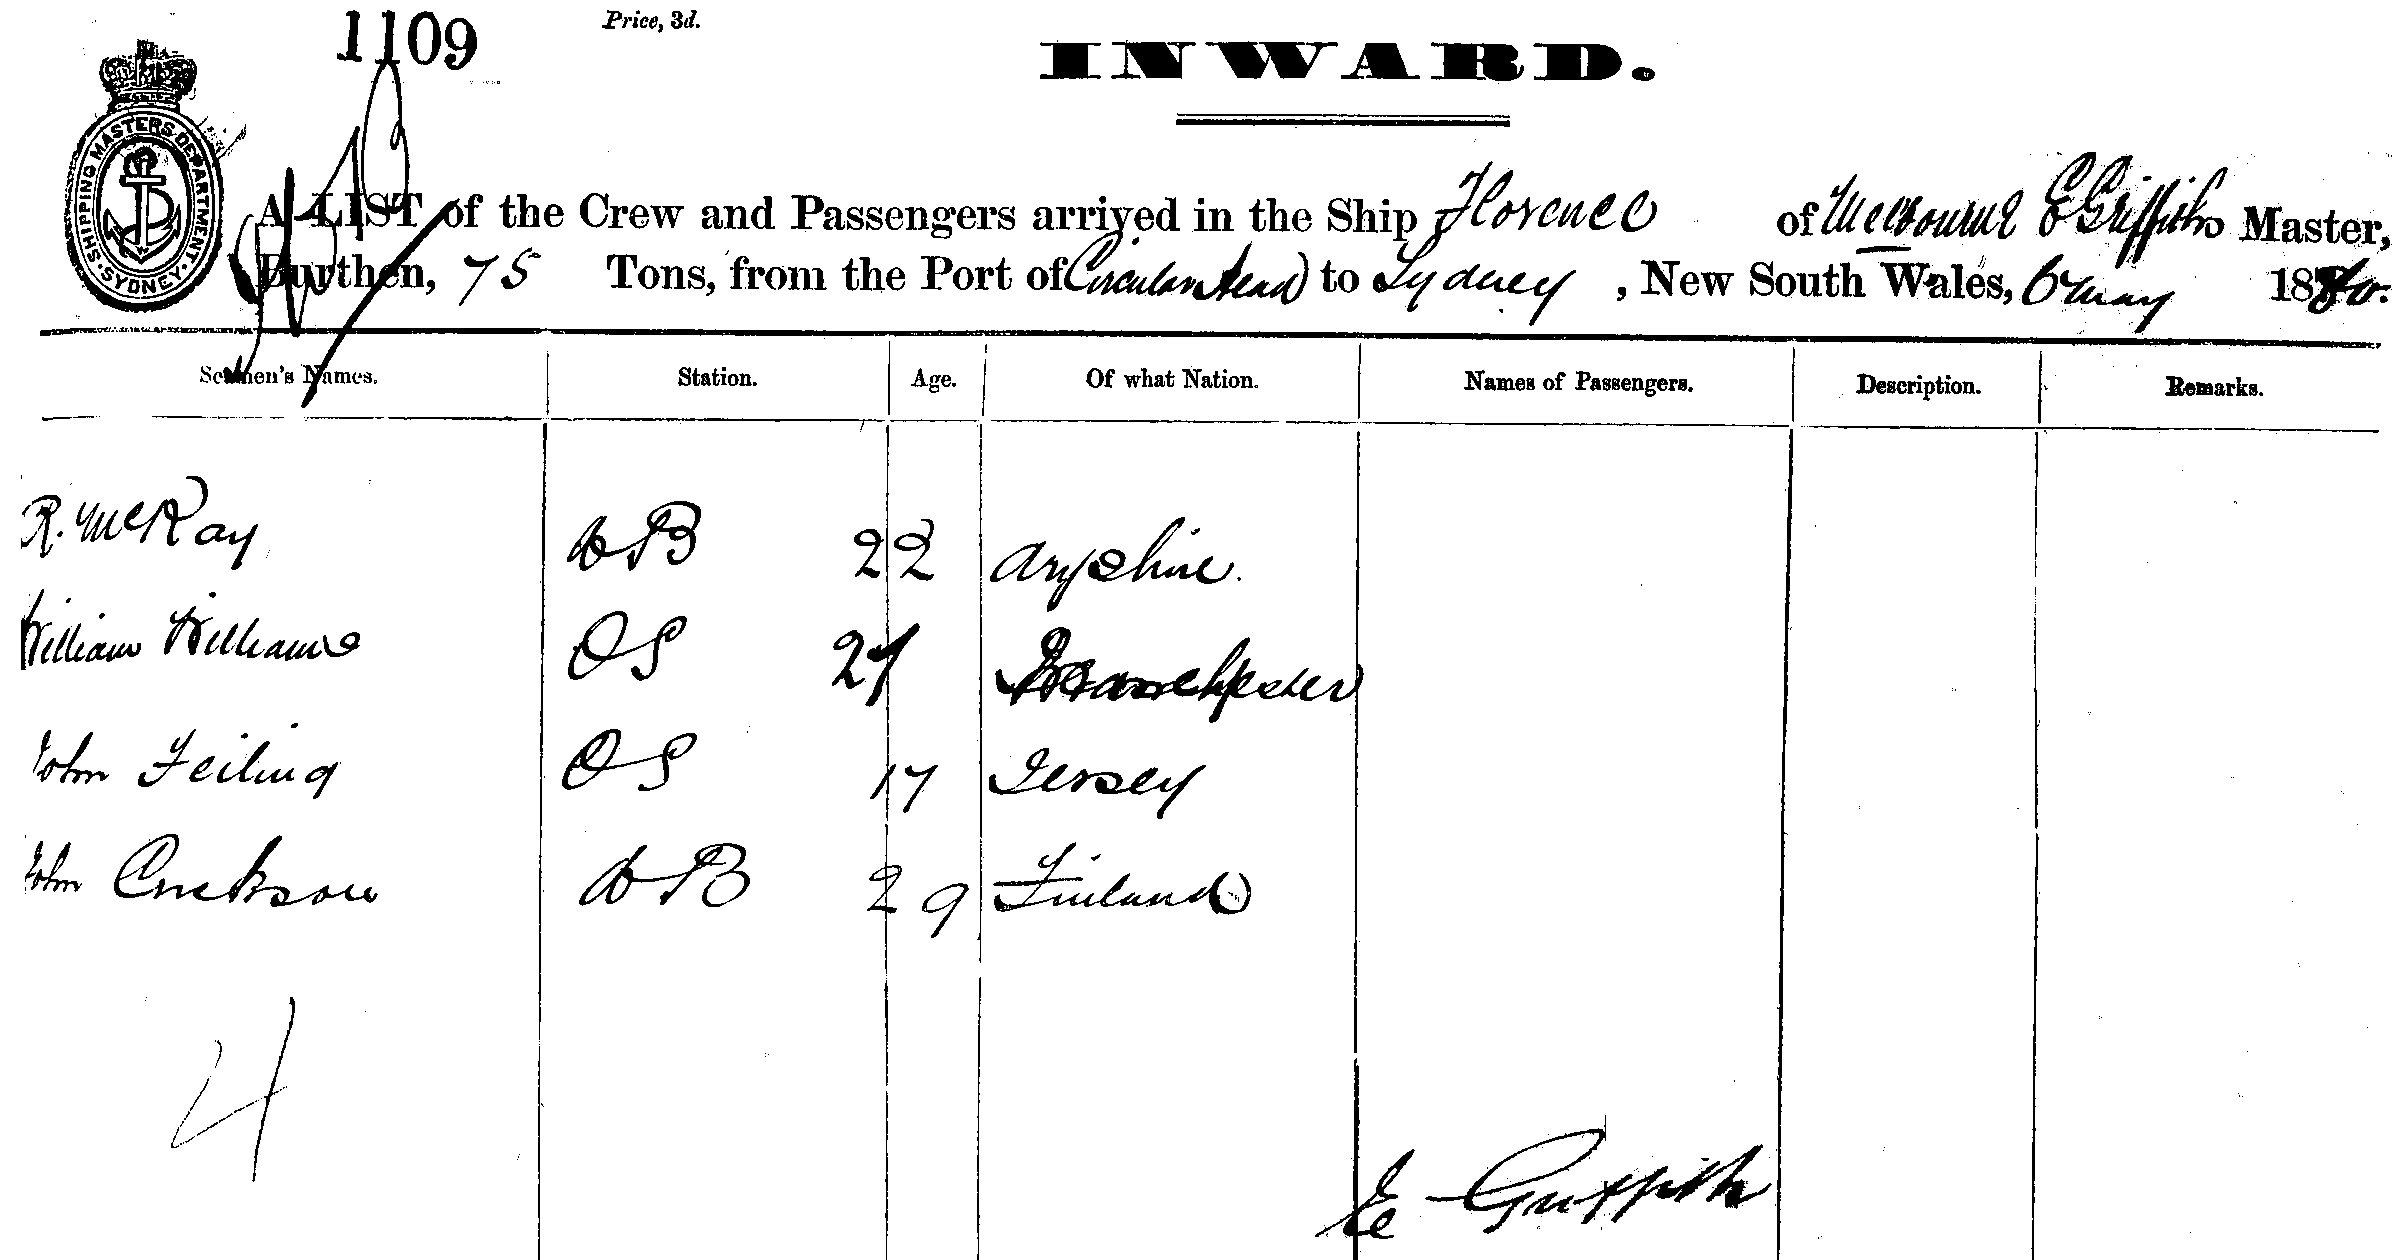 1109
Price, 3d.
INWARD.
SHIPPING MASTERS DEPARTMENT. SYDNEY.
A LIST of the Crew and Passengers arrived in the Ship Florence of Melbourne E Griffiths Master,
Burthen, 75 Tons, from the Port of Circular Head to Sydney, New South Wales, 6 May 1880.
Seamen's Names. Station. Age. Of what Nation. Names of Passengers. Description. Remarks.
R. McKay AB 22 Argshire.
William Williams OS 21 Manchester
John Feiling OS 17 Jersey
John AB 29 Finland
4
E Griffith